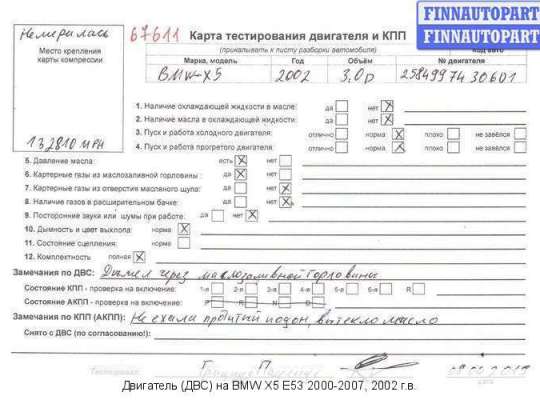 Не мерилась 67611 Карта тестирования двигателя и КПП FINNAUTOPART
Место крепления карты компрессии (прикалывать к листу разборки автомобиля) FINNAUTOPART
Марка, модель Год Объём № двигателя
BMW-X5 2002 3,0D 25849974 306D1
132810 МРН
1. Наличие охлаждающей жидкости в масле: да нет X
2. Наличие масла в охлаждающей жидкости: да нет X
3. Пуск и работа холодного двигателя: отлично норма X плохо не завёлся
4. Пуск и работа прогретого двигателя: отлично норма X плохо не завёлся
5. Давление масла: есть X нет
6. Картерные газы из маслозаливной горловины: да X нет
7. Картерные газы из отверстия масляного щупа: да нет
8. Наличие газов в расширительном бачке: да нет X
9. Посторонние звуки или шумы при работе: да нет X
10. Дымность и цвет выхлопа: норма X
11. Состояние сцепления: норма
12. Комплектность полная X
Замечания по ДВС: Дымел через маслозаливной Горловины
Состояние КПП - проверка на включение: 1-я 2-я 3-я 4-я 5-я 6-я R
Состояние АКПП - проверка на включение: P R N D
Замечания по КПП (АКПП): Не ехали пробитый подон, вытекло масло
Снято с ДВС (по согласованию!):
Тестировал
дата
Двигатель (ДВС) на BMW X5 E53 2000-2007, 2002 г.в.